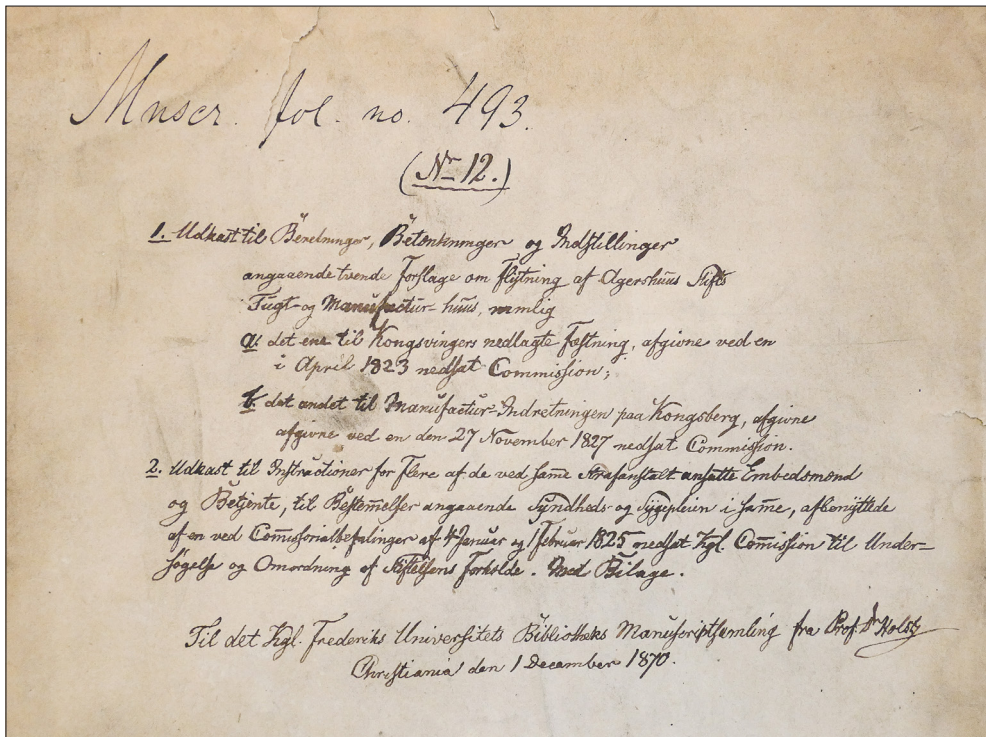 Mnscr. fol. no. 493.
(Nr 12.)
1. Udkast til Beretninger, Betænkninger og Indstillinger
angaaende tvende Forslage om flytning af Agershuus Stifts
Tugt- og Manufactur-huus, nemlig
a. det ene til Kongsvingers nedlagte Fæstning, afgivne ved en
i April 1823 nedsat Commission;
b. det andet til Manufactur-Indretningen paa Kongsberg, afgivne
afgivne ved en den 27 November 1827 nedsat Commission.
2. Udkast til Instructioner for Flere af de ved samme Strafanstalt ansatte Embedsmænd
og Betjente, til Bestem̅elser angaaende Syndheds- og Sygepleien i samme, afbenyttede
af en ved Com̅issorialbefalinger af Januar og Februar 1825 nedsat Kgl. Com̅ission til Under-
søgelse og Omordning af Stiftelsens Forholde. Med Bilage.
Til det Kgl. Frederiks Universitets Bibliotheks Manuscriptsamling fra Prof. Dr Holst
Christiania den 1 December 1870.